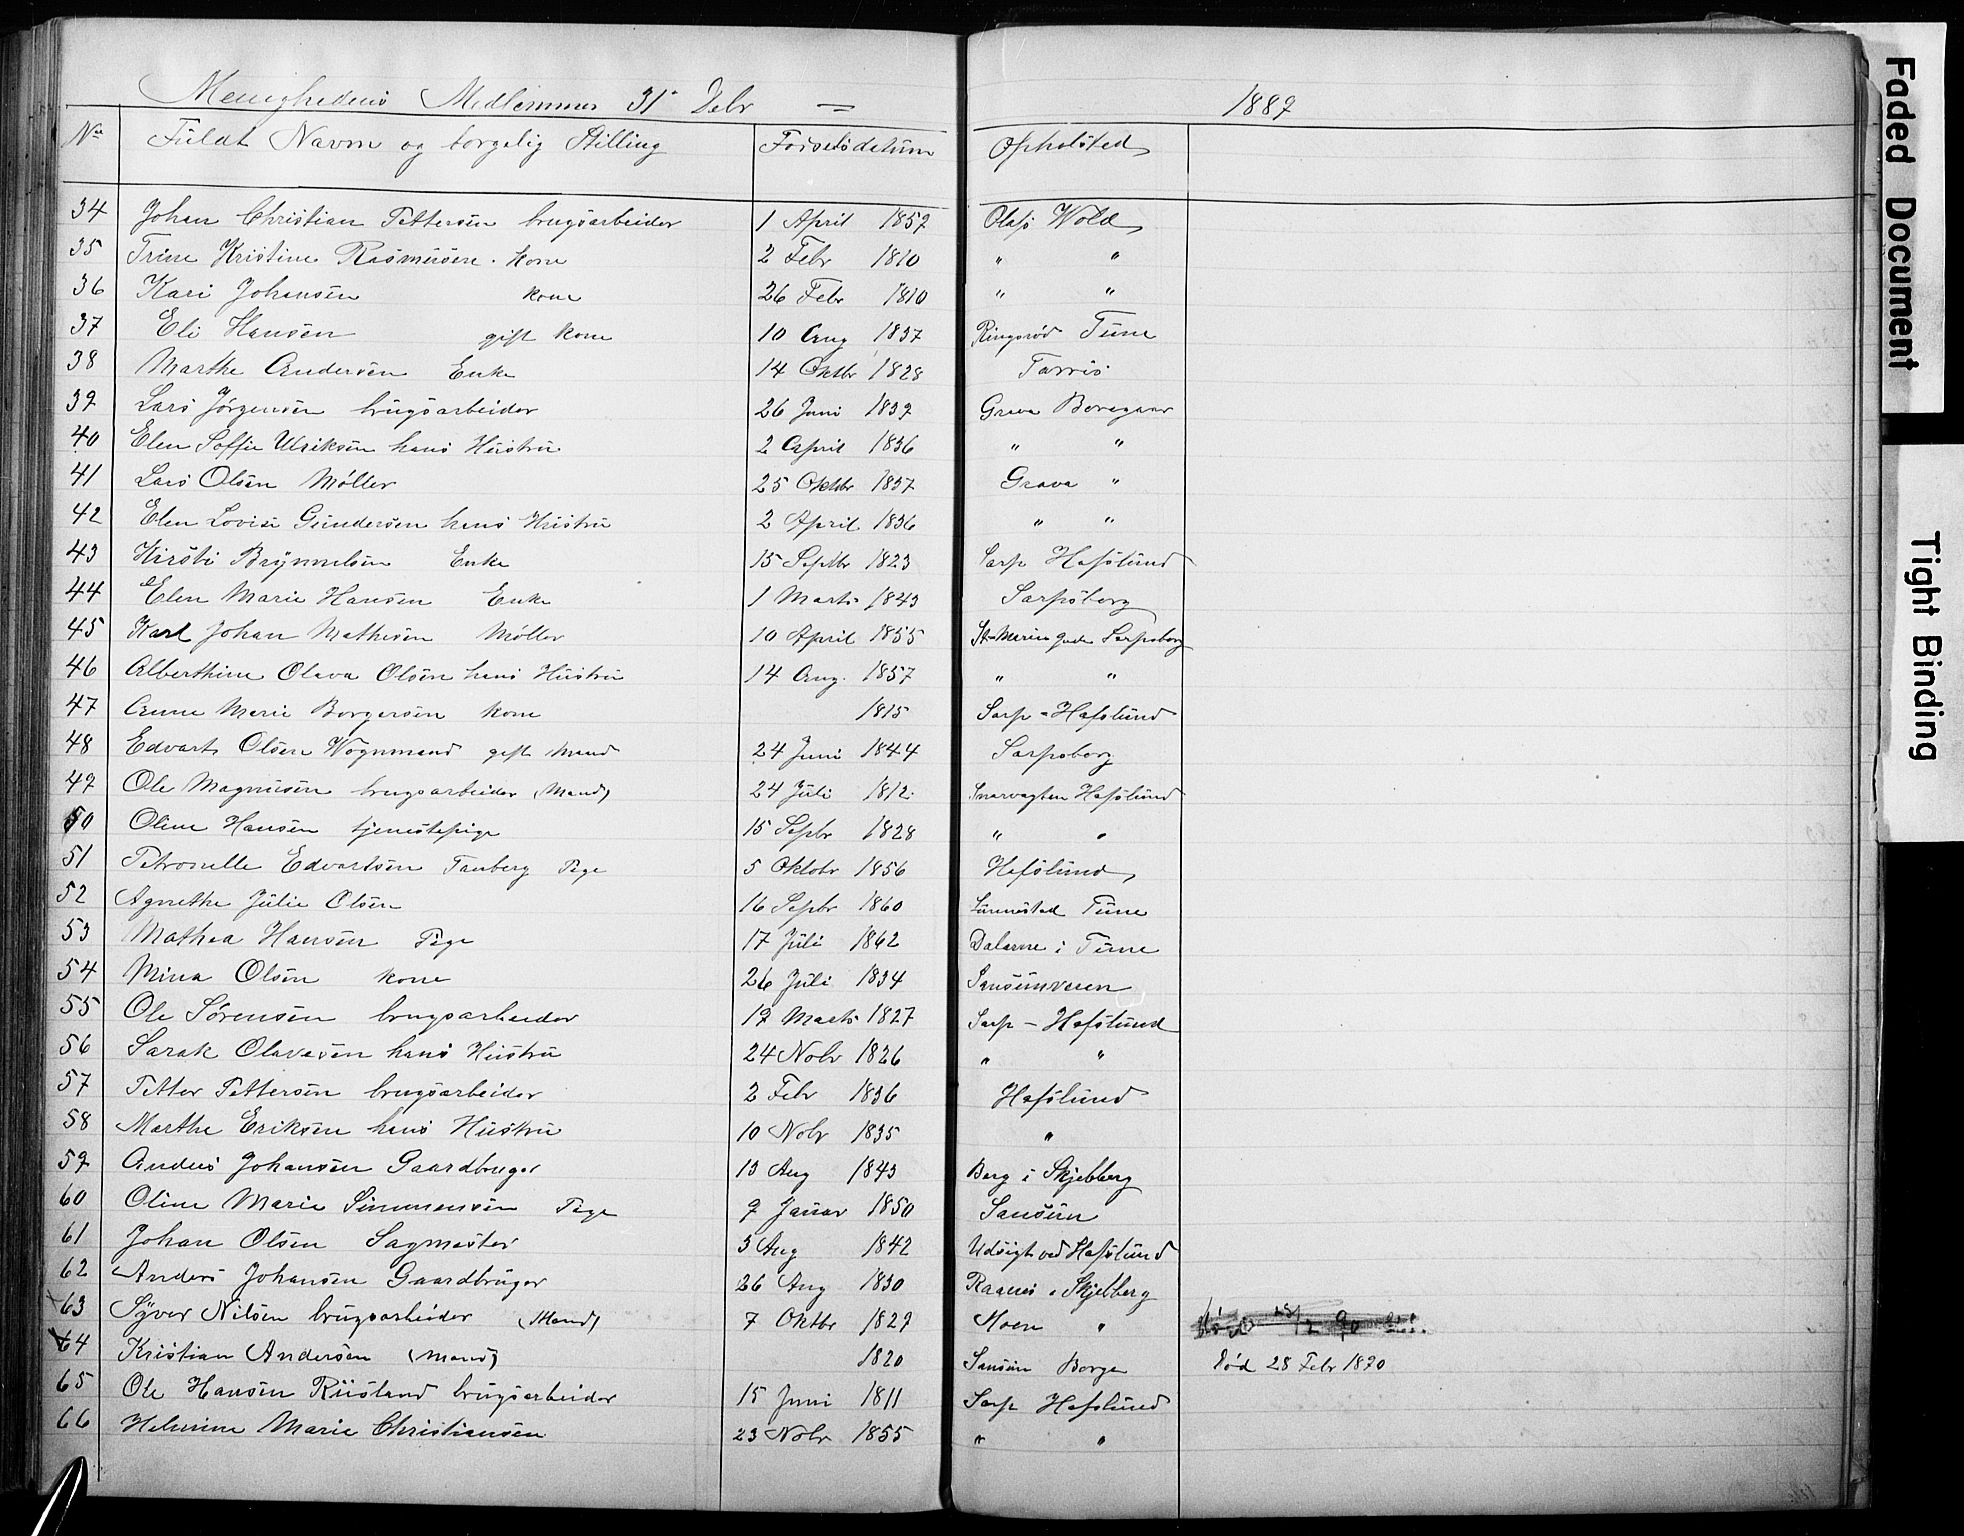 Menighedens Medlemmer 31' Debr = 1889
No Fuldt Navn og borgelig Stilling Fødselsdatum Opholsted
34 Johan Christian Pettersen brugsarbeider 1 April 1859 Olafs Wold
35 Trine Kristine Rasmusen. kone 2 Febr 1810 " "
36 Kari Johansen kone 26 Febr 1810 " "
37 Eli Hansen gift kone 10 Aug 1837 Ringsrød Tune
38 Marthe Andersen Enke 14 Oktbr 1828 Torris
39 Lars Jørgensen brugsarbeider 26 Juni 1839 Grava Boregaar
40 Elen Soffie Ulriksen hans Hustru 2 April 1836 " "
41 Lars Olsen Møller 25 Oktbr 1837 Grava "
42 Elen Lovise Gundersen hans Hustru 2 April 1836 " "
43 Kirsti Brynnelsen Enke 15 Septbr 1823 Sarp Hafslund
44 Elen Marie Hansen Enke 1 Marts 1843 Sarpsborg
45 Karl Johan Mathesen Møller 10 April 1855 St-Marie gade Sarpsborg
46 Alberthine Olava Olsen hans Hustru 14 Aug. 1857 " "
47 Anne Marie Borgersen kone 1815 Sarp - Hafslund
48 Edvart Olsen Wognmand gift Mand 24 Juni 1844 Sarpsborg
49 Ole Magnusen brugsarbeider (Mand) 24 Juli 1812 Snarvagten Hafslund
50 Oline Hansen tjenestepige 15 Sepbr 1828 " "
51 Petronelle Edvartsen Tanberg Pige 5 Oktobr 1856 Hafslund
52 Agnethe Julie Olsen 16 Sepbr 1860 Lunnestad Tune
53 Mathea Hansen Pige 17 Juli 1862 Dalarne i Tune
54 Mina Olsen kone 26 Juli 1834 Sansumveien
55 Ole Sørensen brugsarbeider 19 Marts 1827 Sarp - Hafslund
56 Sarak Olavesen hans Hustru 24 Nobr 1826 " "
57 Petter Pettersen brugsarbeider 2 Febr 1836 Hafslund
58 Marthe Eriksen hans Hustru 10 Nobr 1835 "
59 Anders Johansen Gaardbruger 13 Aug 1843 Berg i Skjebberg
60 Oline Marie Simmensen Pige 9 Januar 1850 Sansun
61 Johan Olsen Sagmester 3 Aug 1842 Udsigt ved Hafslund
62 Anders Johansen Gaardbruger 26 Aug 1830 Raanes i Skjebberg
63 Syver Nilsen brugsarbeider (Mand) 7 Oktbr 1829 Moen "
64 Kristian Andersen (Mand) 1820 Sansun Borge Død 28 Febr 1890
65 Ole Hansen Riisland brugsarbeider 15 Juni 1811 Sarp Hafslund
66 Helmine Marie Christiansen 23 Nobr 1855 " "
Faded Document
Tight Binding